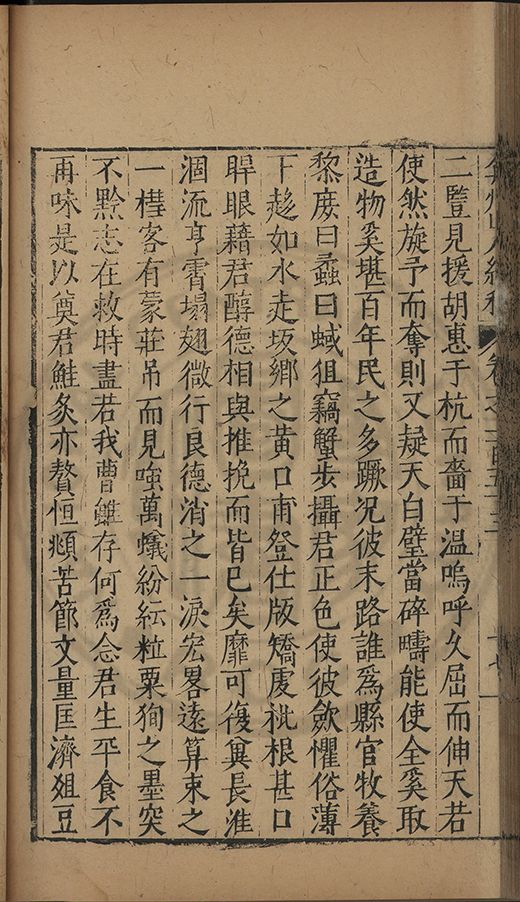 弇州山人續稿 卷之一百五十三 十七
二豎見援胡惠于杭而嗇于温嗚呼久屈而伸天若
使然旋予而奪則又疑天白璧當碎疇能使全奚取
造物奚堪百年民之多蹶况彼末路誰爲縣官牧養
黎庻曰蟊曰蜮狙竊蟹步攝君正色使彼歛懼俗薄
下趍如水走坂鄉之黄口甫登仕版矯虔枇根甚口
睅眼藉君醇德相與推挽而皆已矣靡可復兾長淮
涸流亨霄塌翅微行良德消之一淚宏畧遠算束之
一槥客有蒙莊吊而見嗤萬蟻紛紜粒粟狥之墨突
不黔志在救時盡若我曹雖存何爲念君生平食不
再味是以奠君鮭炙亦贅恒頫苦節文量匡濟爼豆